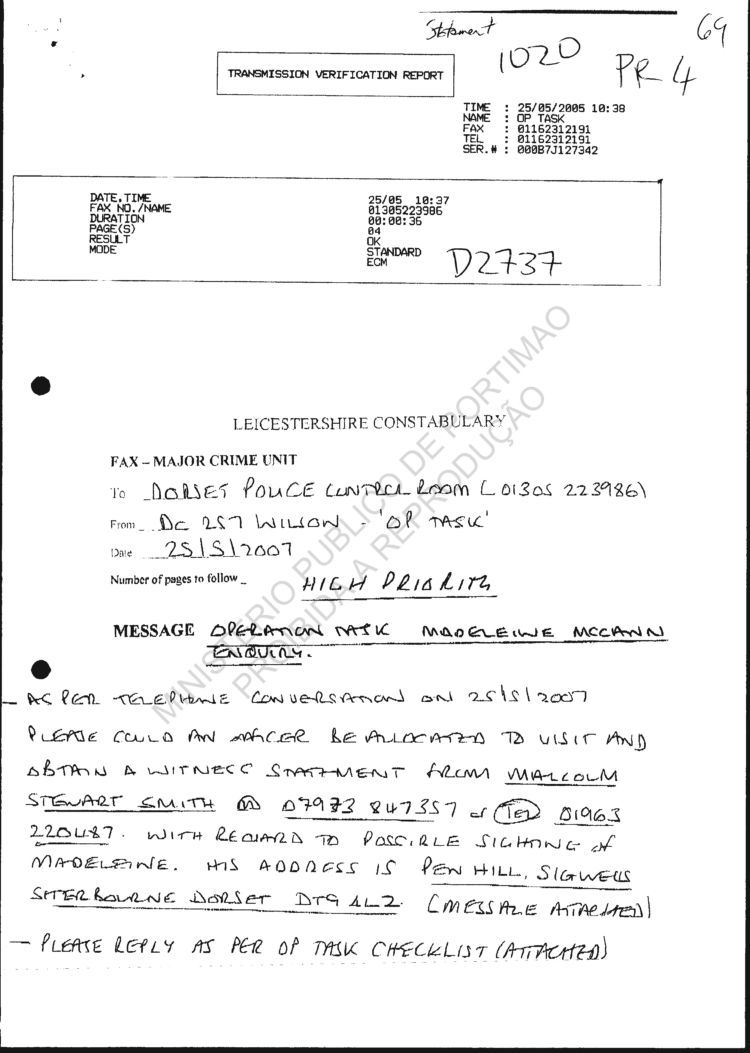 Statement
69
1020
PR 4
TRANSMISSION VERIFICATION REPORT
TIME : 25/05/2005 10:38
NAME : OP TASK
FAX : 01162312191
TEL : 01162312191
SER.# : 000B7J127342
DATE,TIME 25/05 10:37
FAX NO./NAME 01305223986
DURATION 00:00:36
PAGE(S) 04
RESULT OK
MODE STANDARD
ECM
D2737
LEICESTERSHIRE CONSTABULARY
FAX – MAJOR CRIME UNIT
To DORSET POLICE CONTROL ROOM (01305 223986)
From DC 257 WILSON - 'OP TASK'
Date 25/5/2007
Number of pages to follow
HIGH PRIORITY
MESSAGE OPERATION TASK MADELEINE MCCANN
ENQUIRY.
– AS PER TELEPHONE CONVERSATION ON 25/5/2007
PLEASE COULD AN OFFICER BE ALLOCATED TO VISIT AND
OBTAIN A WITNESS STATEMENT FROM MALCOLM
STEWART SMITH M 07973 847357 or TEL 01963
220487. WITH REGARD TO POSSIBLE SIGHTING of
MADELEINE. HIS ADDRESS IS PEN HILL, SIGWELLS
SHERBOURNE DORSET DT9 4LZ. (MESSAGE ATTACHED)
– PLEASE REPLY AS PER OP TASK CHECKLIST (ATTACHED)
MINISTERIO PUBLICO DE PORTIMAO
PROIBIDA A REPRODUÇÃO